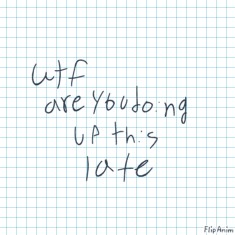 wtf
are you doing
up this
late
FlipAnim